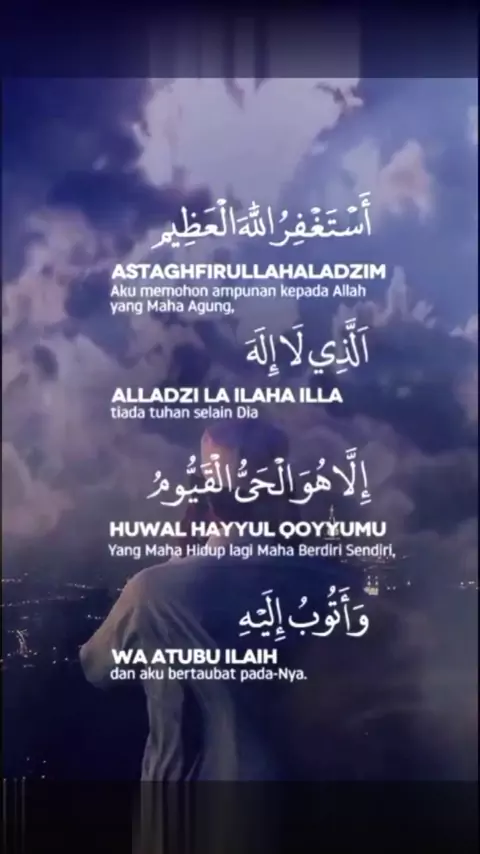 أَسْتَغْفِرُ اللهَ الْعَظِيمِ
ASTAGHFIRULLAHALADZIM
Aku memohon ampunan kepada Allah
yang Maha Agung,
اَلَّذِي لَا إِلَهَ
ALLADZI LA ILAHA ILLA
tiada tuhan selain Dia
إِلَّا هُوَ الْحَيُّ الْقَيُّومُ
HUWAL HAYYUL QOYYUMU
Yang Maha Hidup lagi Maha Berdiri Sendiri,
وَأَتُوبُ إِلَيْهِ
WA ATUBU ILAIH
dan aku bertaubat pada-Nya.